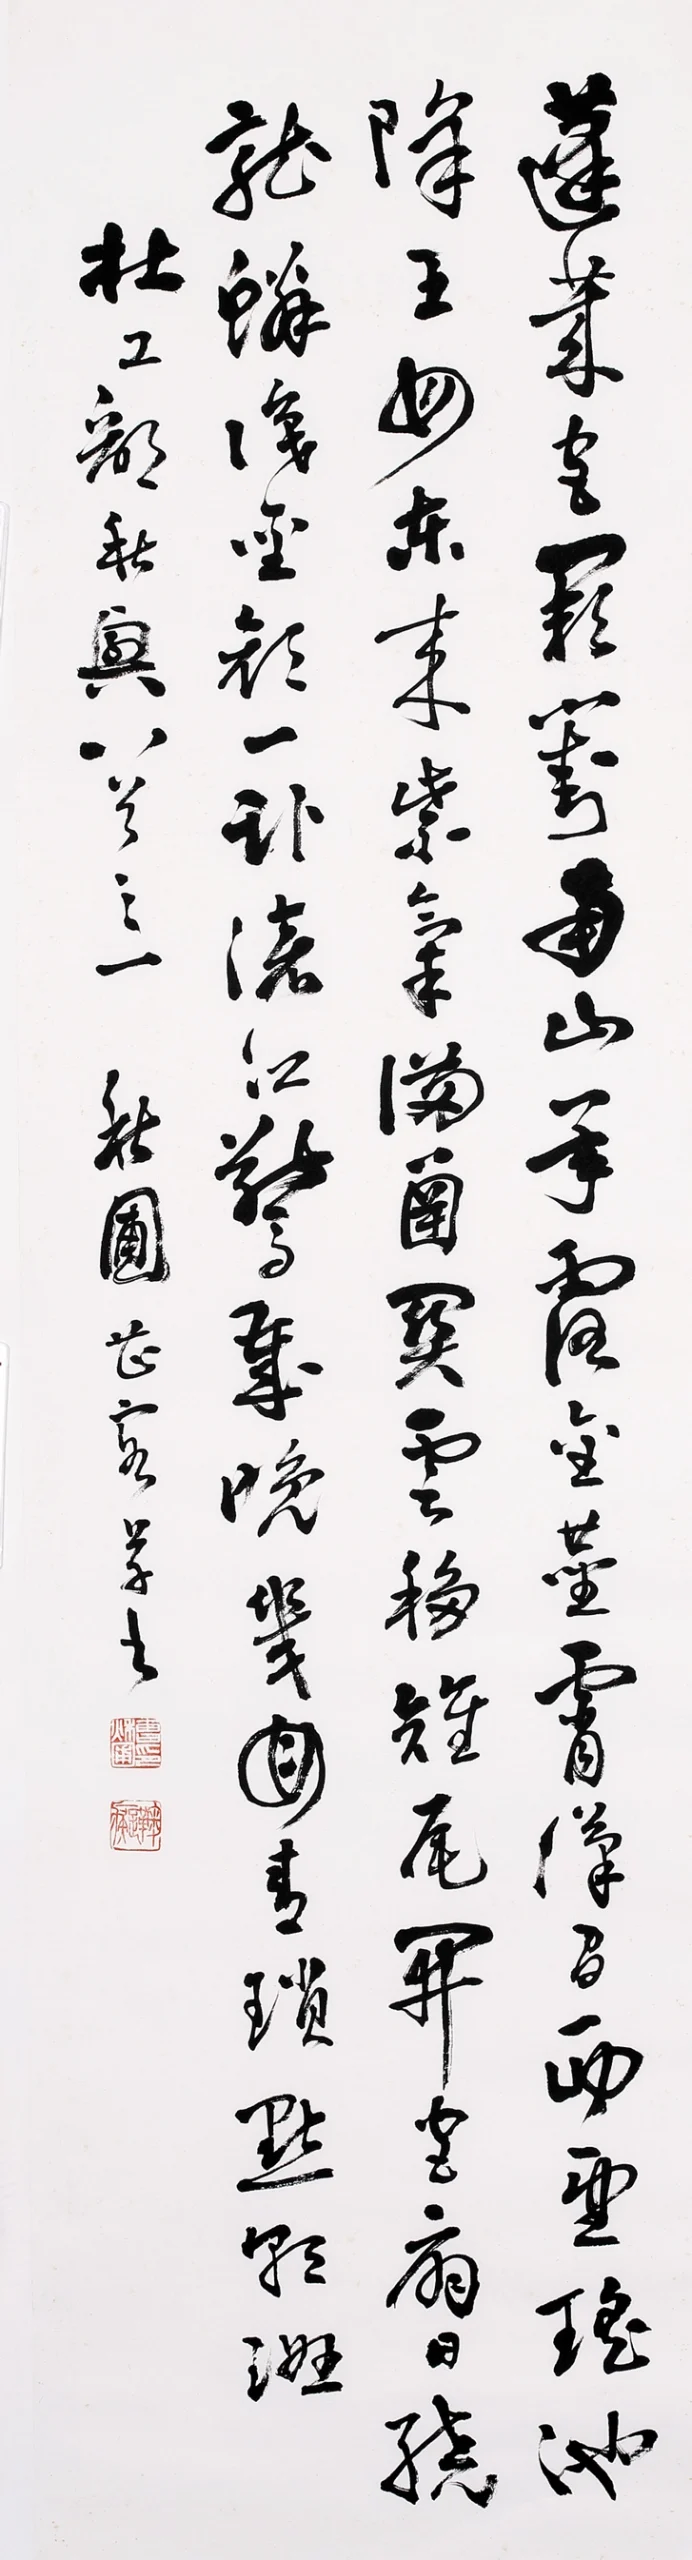 蓬萊宮闕對南山承露金莖霄漢間西望瑤池
降王母東來紫氣滿函關雲移雉尾開宮扇日繞
龍鱗識聖顏一臥滄江驚歲晚幾回青瑣點朝班
杜工部秋興八首之一 秋圃